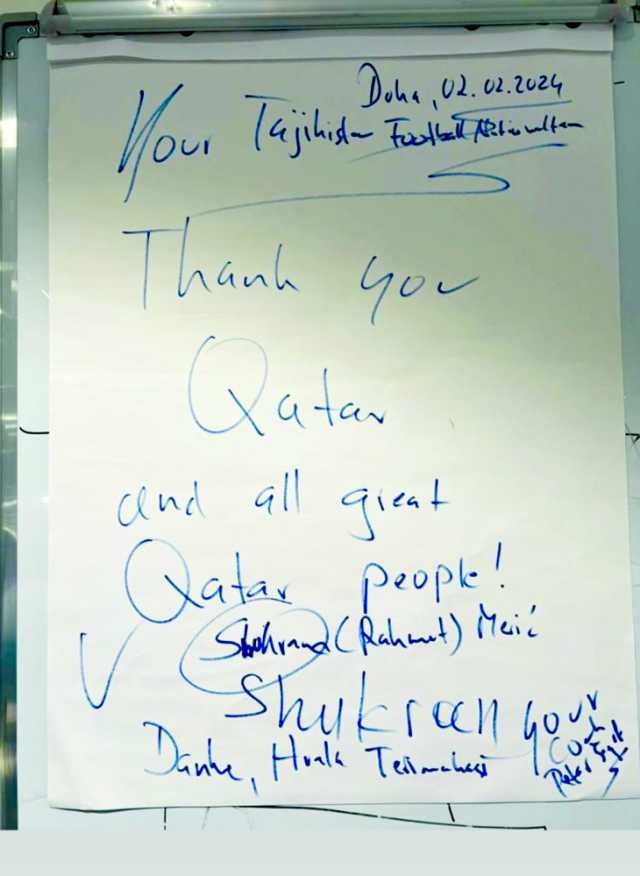 Doha, 02.02.2024
Your Tajikistan Football National team
Thank you
Qatar
and all great
Qatar people!
Shohrana (Rahmat) Merić
Shukran your
Coach
Danke, Hvala Terimakasi
Petar